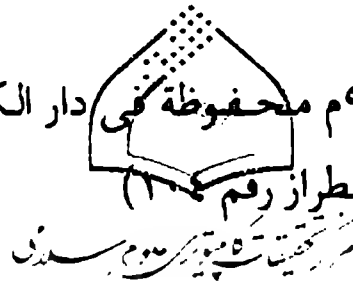 م محفوظة في دار الك
طراز رقم ١٠٤)
مرکز تحقیقات کامپیوتری علوم اسلامی